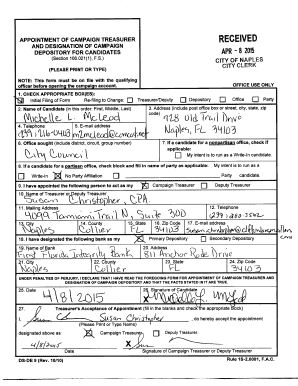 APPOINTMENT OF CAMPAIGN TREASURER
AND DESIGNATION OF CAMPAIGN
DEPOSITORY FOR CANDIDATES
(Section 106.021(1), F.S.)
(PLEASE PRINT OR TYPE)
NOTE: This form must be on file with the qualifying
officer before opening the campaign account.
RECEIVED
APR - 8 2015
CITY OF NAPLES
CITY CLERK
OFFICE USE ONLY
1. CHECK APPROPRIATE BOX(ES):
Initial Filing of Form Re-filing to Change: Treasurer/Deputy Depository Office Party
2. Name of Candidate (in this order: First, Middle, Last)
Michelle L. McLeod
3. Address (include post office box or street, city, state, zip code)
928 Old Trail Drive
Naples, FL 34103
4. Telephone
5. E-mail address
6. Office sought (include district, circuit, group number)
City Council
7. If a candidate for a nonpartisan office, check if applicable:
My intent is to run as a Write-In candidate.
8. If a candidate for a partisan office, check block and fill in name of party as applicable: My intent is to run as a
Write-In No Party Affiliation Party candidate.
9. I have appointed the following person to act as my Campaign Treasurer Deputy Treasurer
10. Name of Treasurer or Deputy Treasurer
Susan Christopher, CPA.
11. Mailing Address
4099 Tamiami Trail N, Suite 300
12. Telephone
13. City
Naples
14. County
Collier
15. State
FL
16. Zip Code
34103
17. E-mail address
18. I have designated the following bank as my Primary Depository Secondary Depository
19. Name of Bank
First Florida Integrity Bank
20. Address
811 Anchor Rode Drive
21. City
Naples
22. County
Collier
23. State
FL
24. Zip Code
34103
UNDER PENALTIES OF PERJURY, I DECLARE THAT I HAVE READ THE FOREGOING FORM FOR APPOINTMENT OF CAMPAIGN TREASURER AND
DESIGNATION OF CAMPAIGN DEPOSITORY AND THAT THE FACTS STATED IN IT ARE TRUE.
25. Date
4/8/2015
26. Signature of Candidate
X
27. Treasurer's Acceptance of Appointment (fill in the blanks and check the appropriate block)
I, Susan Christopher, do hereby accept the appointment
(Please Print or Type Name)
designated above as: Campaign Treasurer Deputy Treasurer.
4/8/2015
X
Date
Signature of Campaign Treasurer or Deputy Treasurer
DS-DE 9 (Rev. 10/10)
Rule 1S-2.0001, F.A.C.